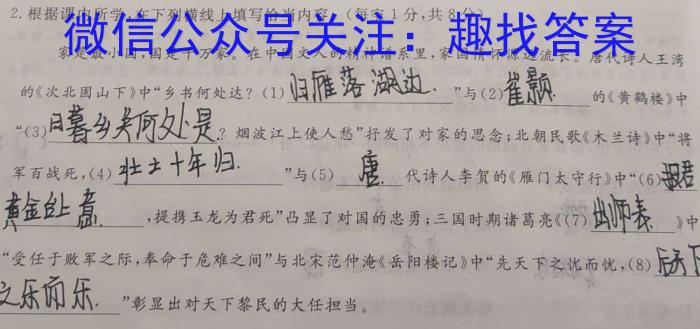 2.根据课内所学,在下列横线上填写恰当内容。(每空1分,共8分)
微信公众号关注：趣找答案
家是最小国,国是千万家。在中国文人的精神谱系里,家国情怀源远流长。唐代诗人王湾
的《次北固山下》中“乡书何处达？(1)归雁落湖边.”与(2)崔颢的《黄鹤楼》中
“(3)日暮乡关何处是？烟波江上使人愁”抒发了对家的思念;北朝民歌《木兰诗》中“将
军百战死,(4)壮士十年归.”与(5)唐代诗人李贺的《雁门太守行》中“(6)报君
黄金台上意,提携玉龙为君死”凸显了对国的忠勇;三国时期诸葛亮《(7)出师表》中
“受任于败军之际,奉命于危难之间”与北宋范仲淹《岳阳楼记》中“先天下之忧而忧,(8)后天下
之乐而乐.”彰显出对天下黎民的大任担当。